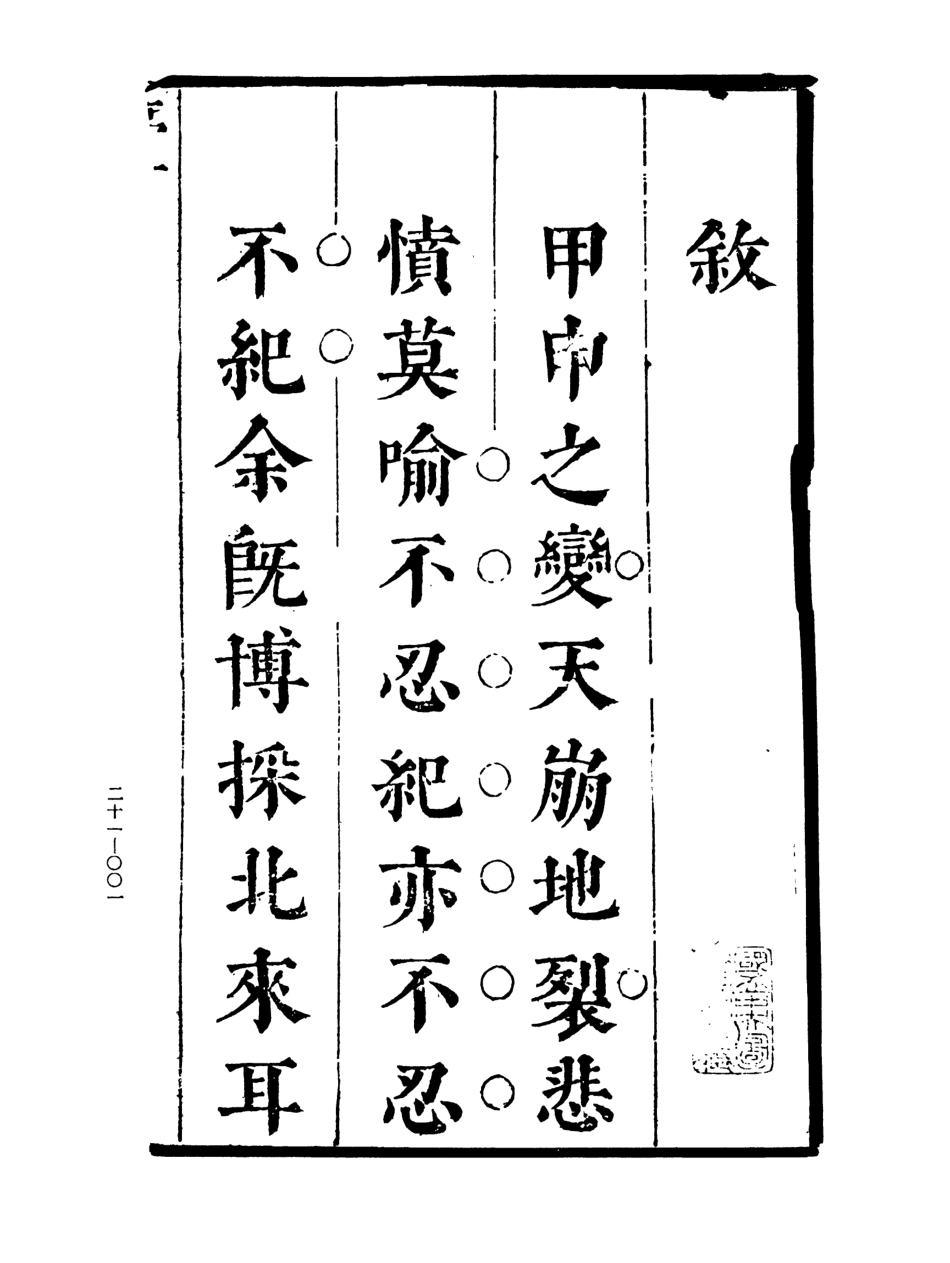 敘
甲申之變天崩地裂悲
憤莫喻不忍紀亦不忍
不紀余既博採北來耳
二十一—〇〇一